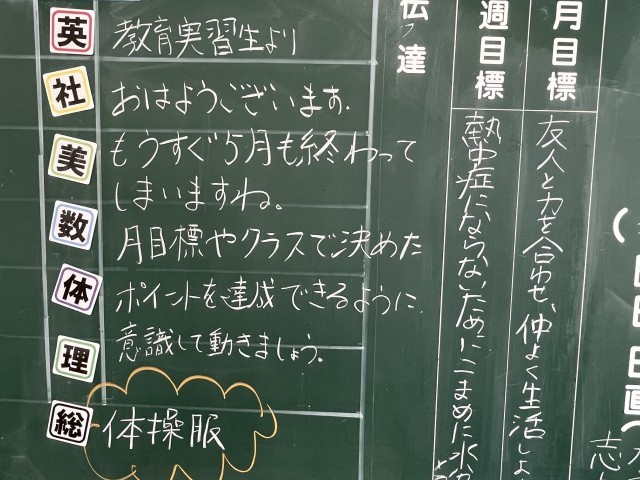 英
社
美
数
体
理
総
教育実習生より
おはようございます。
もうすぐ5月も終わって
しまいますね。
月目標やクラスで決めた
ポイントを達成できるように
意識して動きましょう。
体操服
伝達
週目標
熱中症にならないためにこまめに水
月目標
友人と力を合わせ、仲よく生活しよ
日直
志